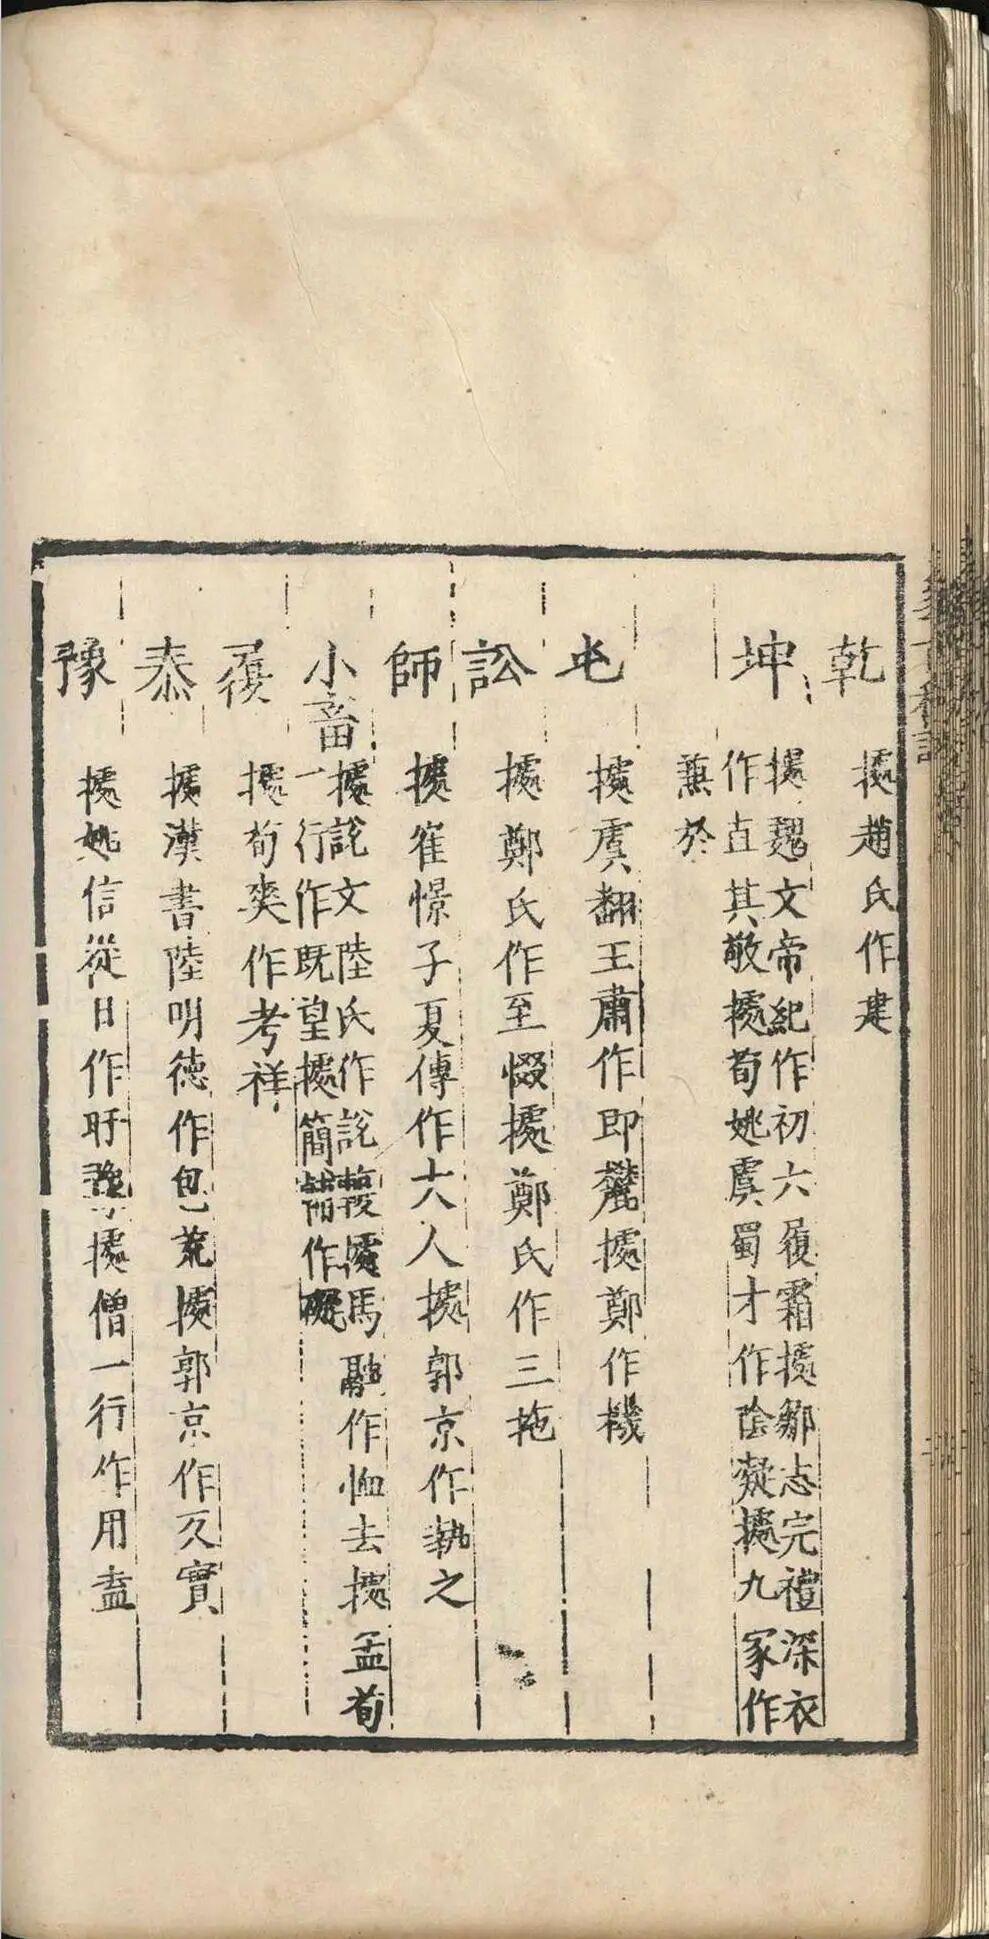 乾
據趙氏作建
坤
據魏文帝紀作初六履霜據鄒志完禮深衣
作直其敬據荀姚虞蜀才作陰凝據九家作
兼於
屯
據虞翻王肅作即麓據鄭作機
訟
據鄭氏作至惙據鄭氏作三拖
師
據崔憬子夏傳作大人據郭京作執之
小畜
據說文陸氏作說輹據馬融作恤去據孟荀
一行作既望據簡
作
履
據荀爽作考祥
泰
據漢書陸明德作包巟據郭京作久實
豫
據姚信從日作旴豫據僧一行作用盍